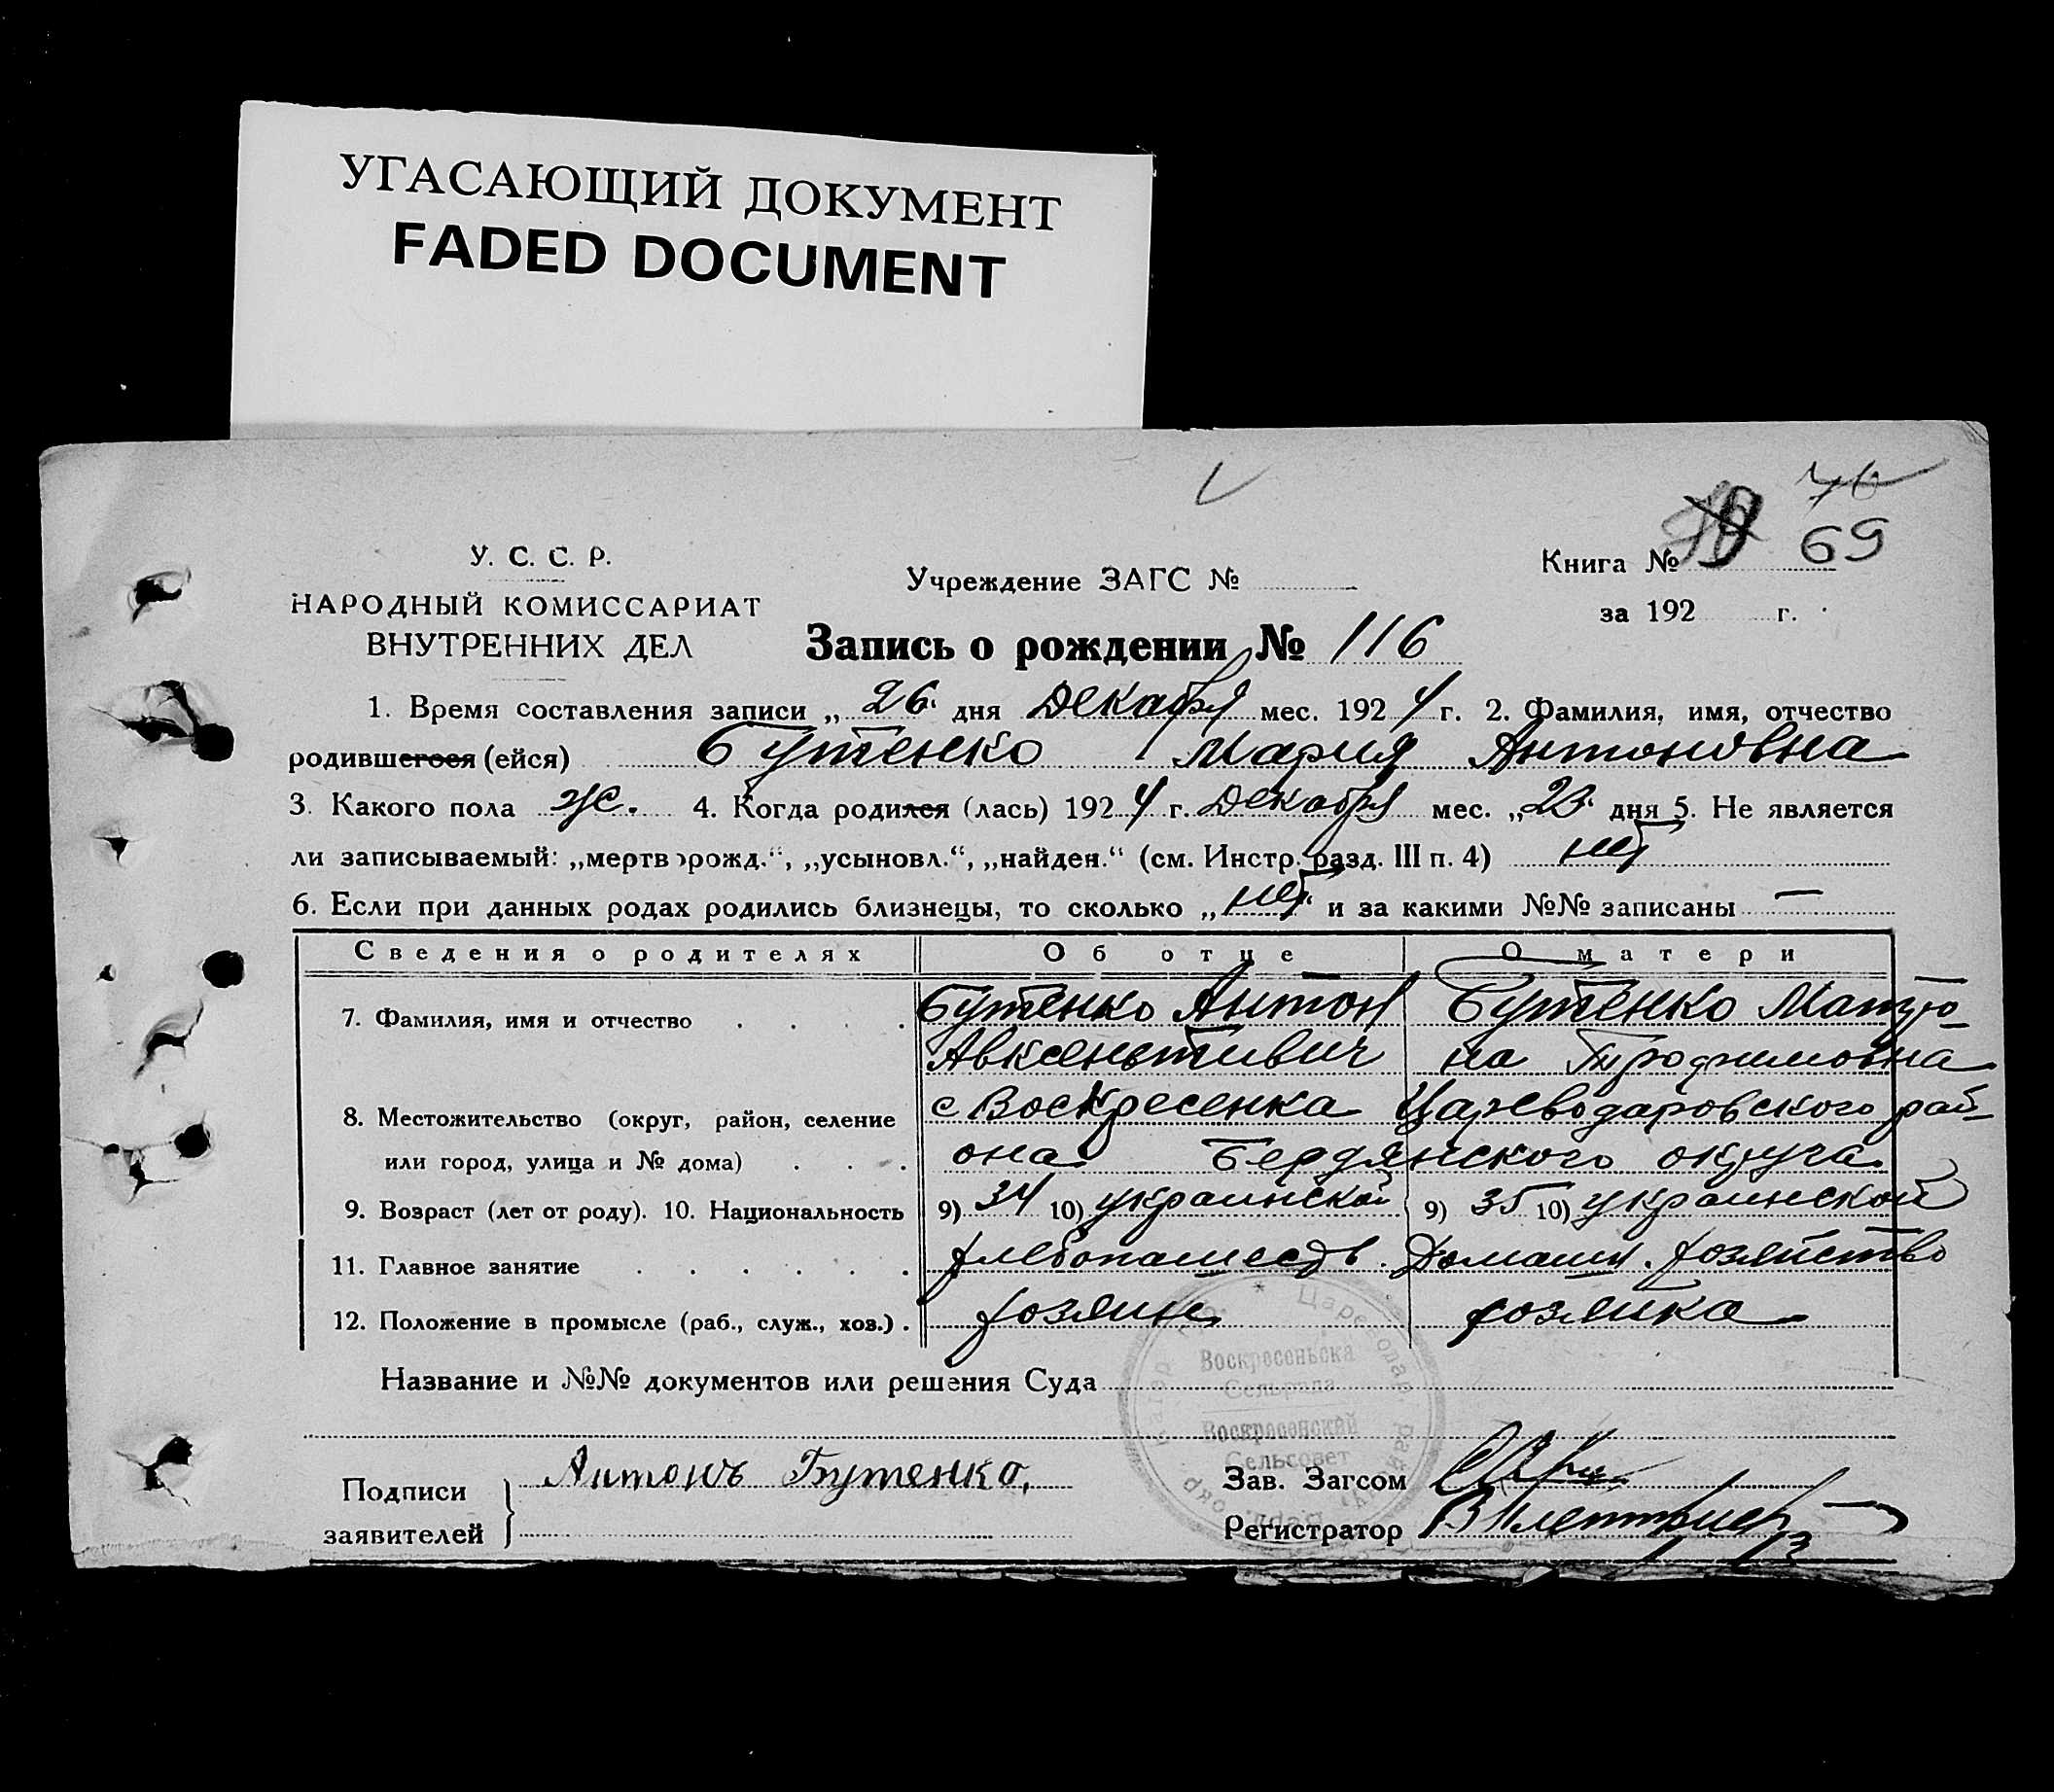 УГАСАЮЩИЙ ДОКУМЕНТ
FADED DOCUMENT
69
У. С. С. Р.
НАРОДНЫЙ КОМИССАРИАТ
ВНУТРЕННИХ ДЕЛ
Учреждение ЗАГС №
Книга №
за 192 г.
Запись о рождении № 116
1. Время составления записи „ 26. дня Декабря мес. 192 4 г. 2. Фамилия, имя, отчество
родившегося (ейся) Бутенко Мария Антоновна
3. Какого пола ж. 4. Когда родился (лась) 192 4 г. Декабря мес. „ 23. дня 5. Не является
ли записываемый: „мертворожд.“, „усыновл.“, „найден.“ (см. Инстр. разд. III п. 4) нет
6. Если при данных родах родились близнецы, то сколько „ нет. и за какими №№ записаны —
Сведения о родителях Об отце О матери
7. Фамилия, имя и отчество . . . . Бутенко Антон Бутенко Матрю-
Авксентьевич на Трофимовна
8. Местожительство (округ, район, селение с Воскресенка Цареводаровского рай-
или город, улица и № дома) . . . она Бердянского округа
9. Возраст (лет от роду). 10. Национальность 9) 34 10) украинской 9) 35 10) украинской
11. Главное занятие . . . . . . хлебопашеств. Домашн. хозяйство
12. Положение в промысле (раб., служ., хоз.) . хозяин хозяйка
Название и №№ документов или решения Суда
Воскресеньска
Сельрада
Воскресенский
Сельсовет
Подписи
заявителей
Антонъ Бутенко.
Зав. Загсом
Регистратор